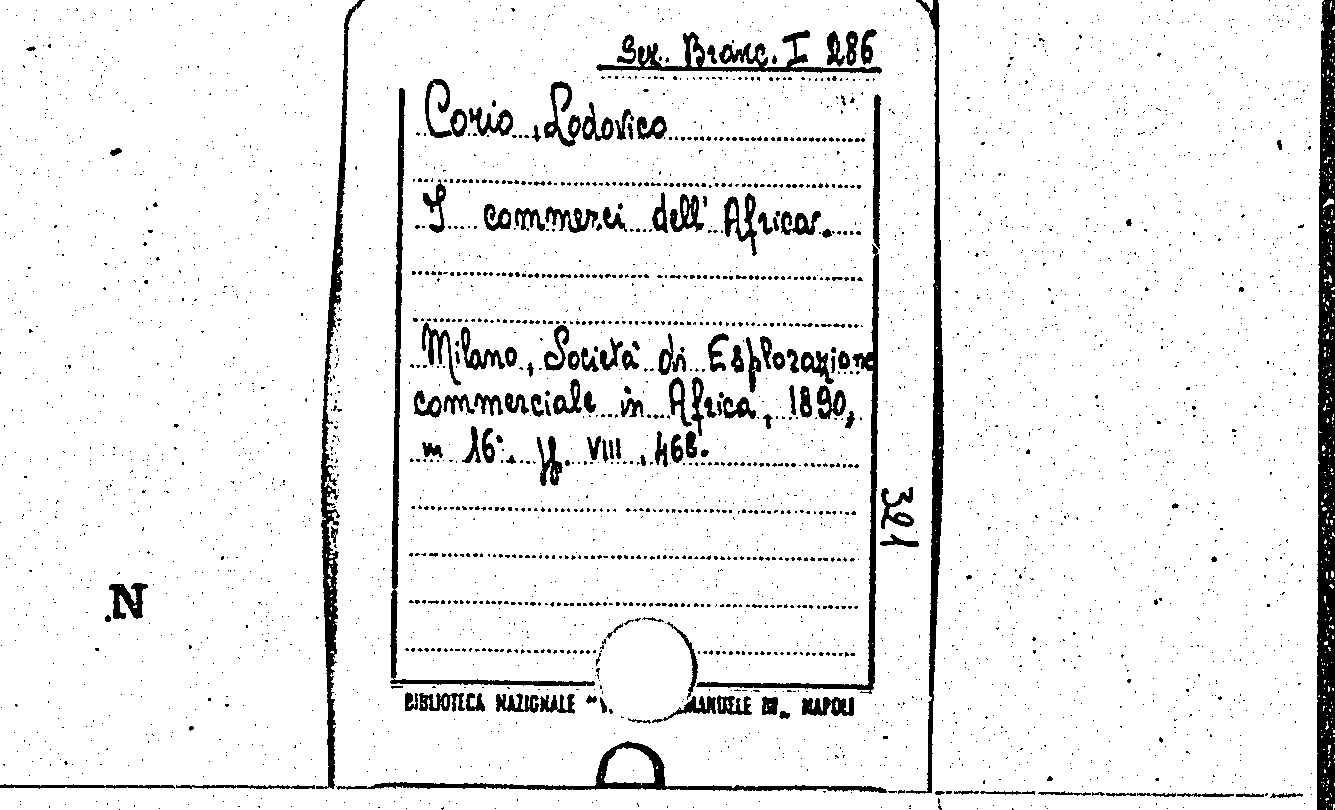 Sez. Branc. I 286
Corio, Lodovico
I commerci dell' Africa.
Milano, Società di Esplorazione
commerciale in Africa, 1890,
in 16°. pp. VIII, 468.
321
N
BIBLIOTECA NAZIONALE "V. MANUELE III„ NAPOLI